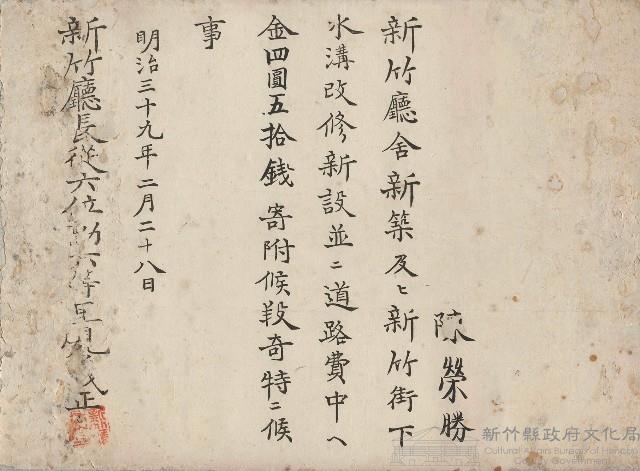 陳榮勝
新竹廳舍新築及ヒ新竹街下
水溝改修新設並ニ道路費中ヘ
金四圓五拾錢寄附候段奇特ニ候
事
明治三十九年二月二十八日
新竹廳長從六位勳六等里見義正
新竹縣政府文化局
Cultural Affairs Bureau of Hsinchu
County Government